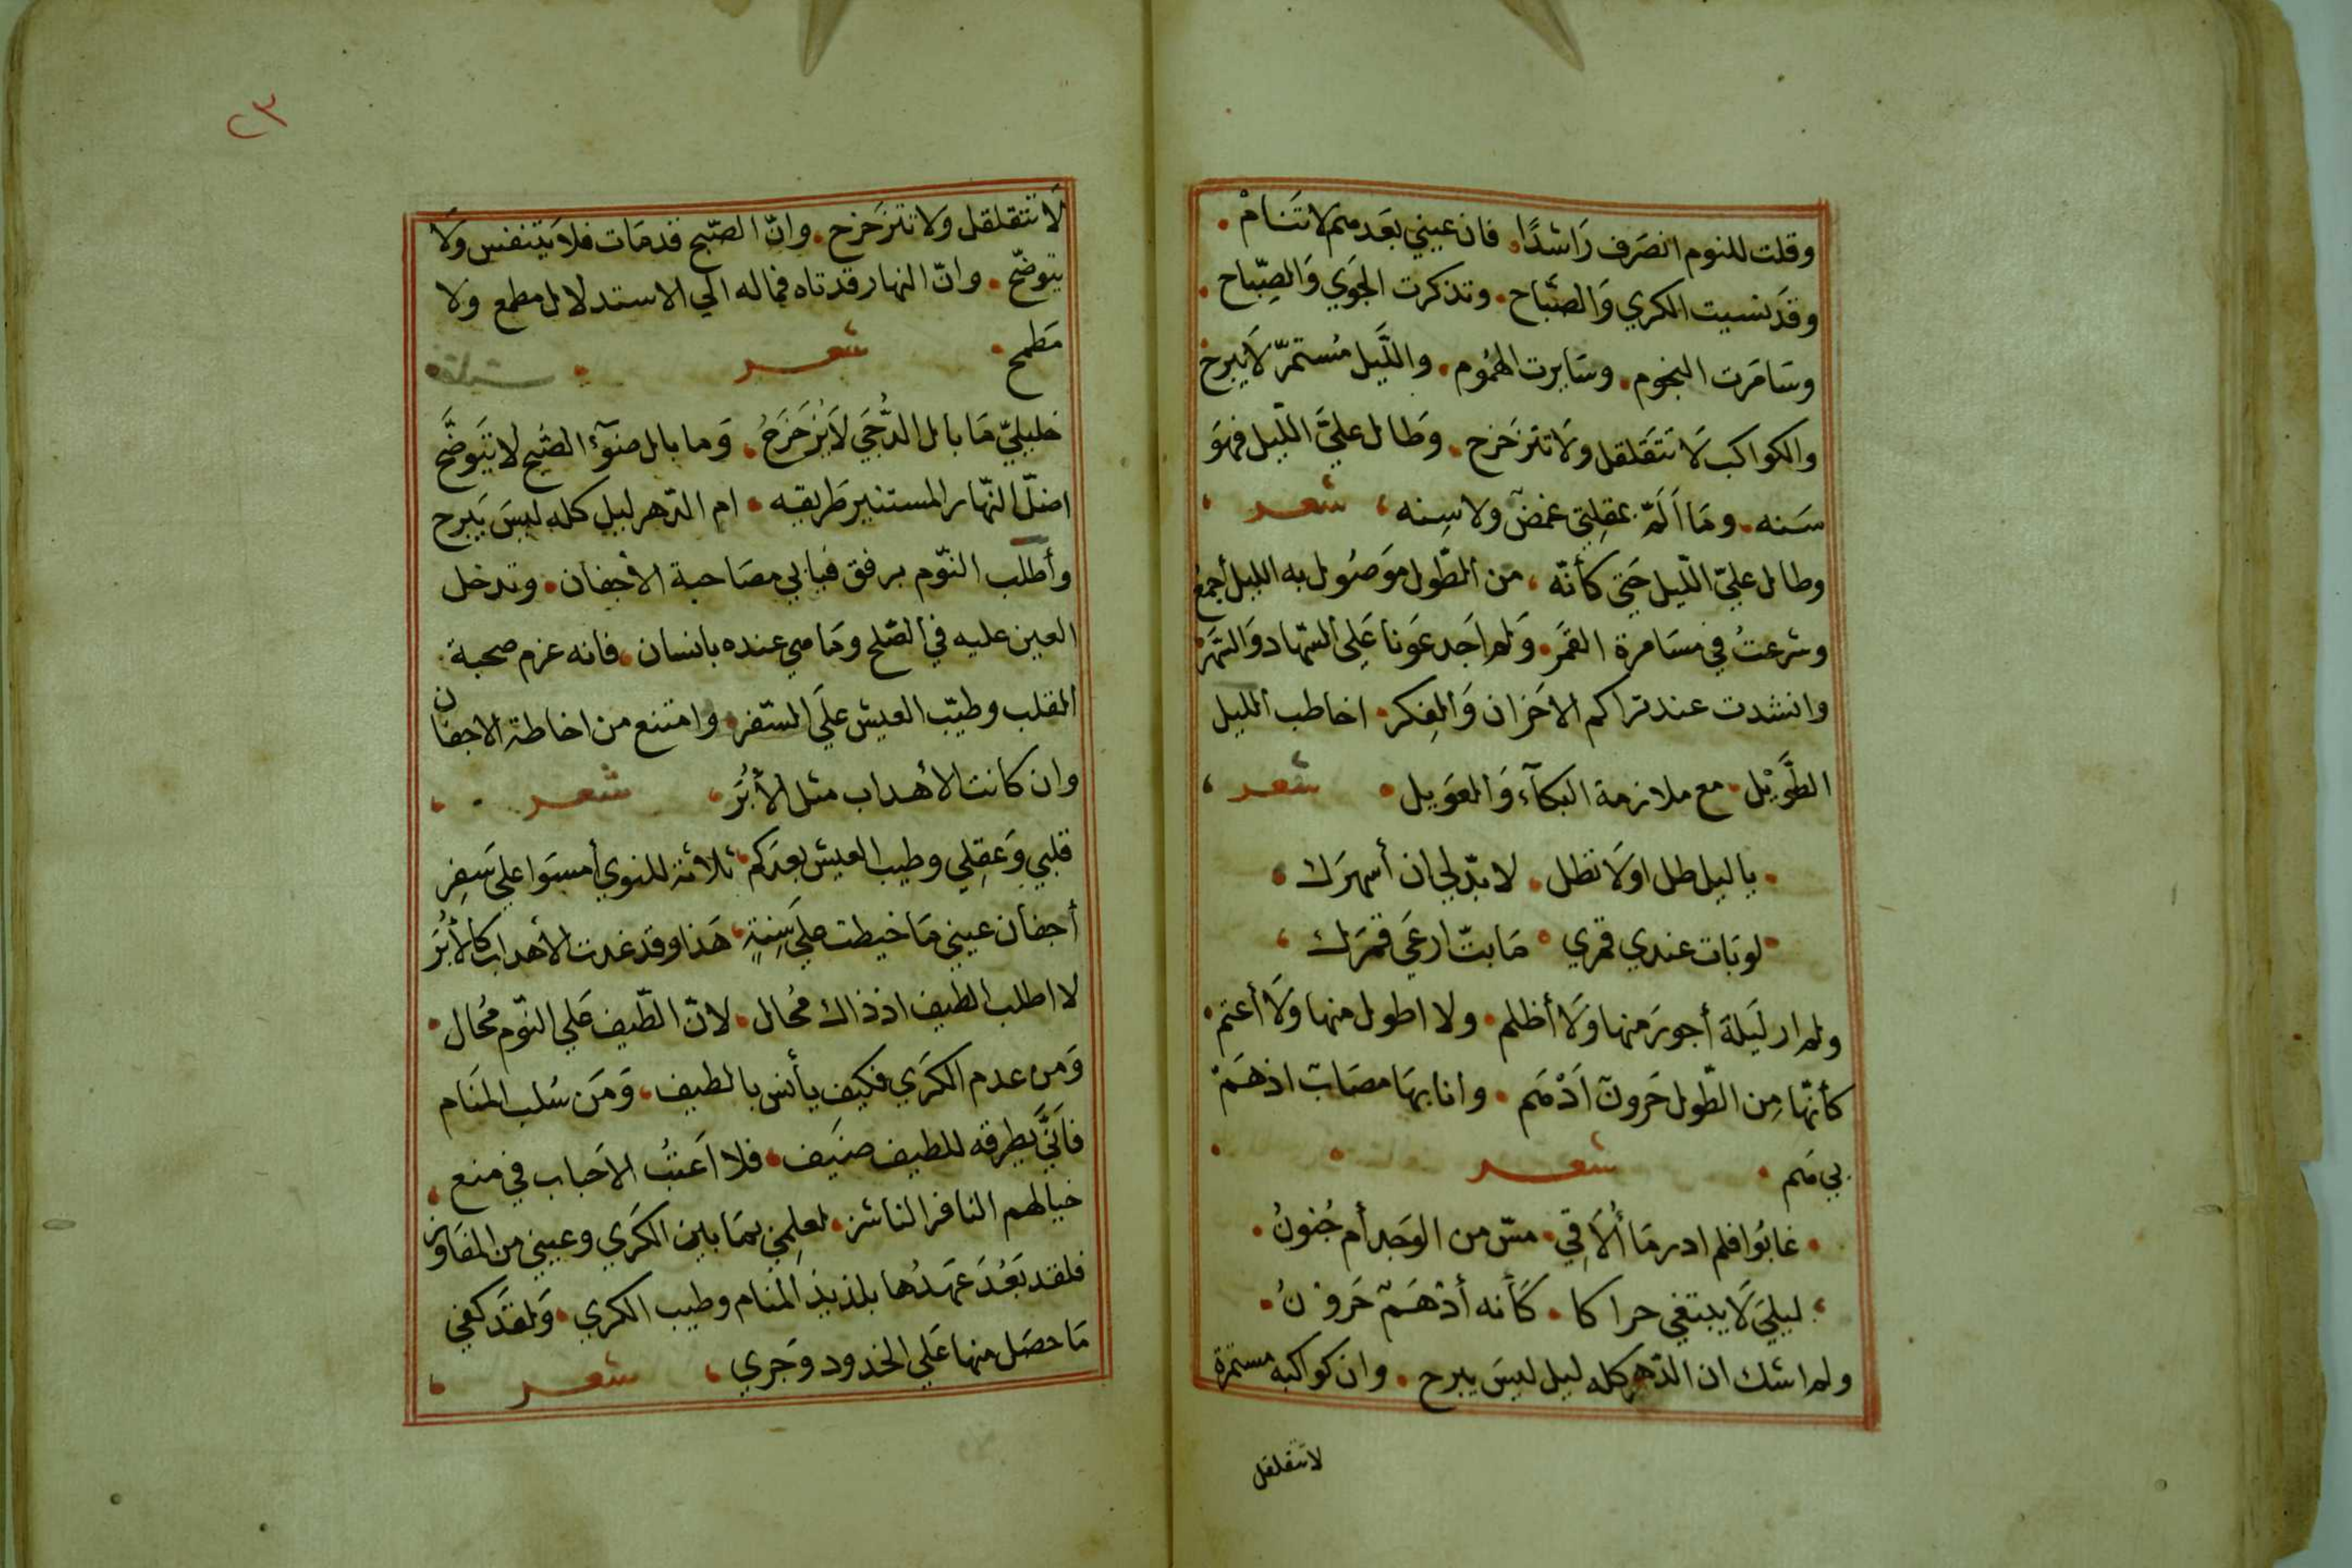 وقلت للنوم انصَرف رَاشدًا فان عيني بعَدهم لا تَنامْ
وقد نسيت الكري وَالصّباح وتذكرت الجوَي وَالصِّباح
وسَامَرت النجوم وسَايرت الهمُوم واللَّيل مُستمرّ لَا يَبرح
والكواكب لَا تتَقَلقل ولَا تتزحَزح وطَال عليَّ اللّيل فهوَ
سَنه ومَا اَلَمّ بمقلِتي غمضٌ ولا سِنه شعر
وطال عليّ اللّيل حَتى كأنّه من الطّول مَوصُول به الليل أجمع
وشرعتُ في مسَامرة القمَر وَلم اَجد عَونا عَلى السّهاد وَالسّهَر
وانشدت عند تراكم الاحَزان وَالفِكر اخاطب الليل
الطَّوْيل مع ملازمة البكآء وَالعَويل شعر
يا ليل طل او لَا تطل لا بدّ لي ان أسهَرَك
لو بَات عندي قمري مَا بتّ ارعَي قمَرَك
ولم ار لَيلة أجورَ منها وَلَا أظلم ولا اطول منها وَلَا أعتم
كأنّها مِن الطّول حَرونٌ اَدْهَم وانا بهَا مصَابٌ اذ هَمّ
بي هَم شعر
غابُوا فلم ادر مَا أُلَاقِي مسّ من الوَجد أم جُنونُ
ليليَ لَا يبتغي حراكا كَأنه أدْهَمٌ حَرونُ
ولم اشك ان الدّهر كله ليل ليسَ يبرح وان كواكبه مستمرة
لا تتقلقل
٢٣
لَا تتقلقل ولا تتزحَزح وانّ الصّبح قد مَات فلا يَتنفس ولَا
يتوضّح وانّ النهار قد تاه فما له الي الاستدلال مطمع ولا
مَطمح شعر
خليليّ مَا بال الدُّجَي لَا يُزحَزحُ وَما بال ضوَءُ الصّبح لا يتَوضَّح
اضلّ النّهار المستنير طَريقه ام الدّهر ليل كله ليسَ يَبرح
وأطلب النّوم برفق فيَابي مصَاحبة الأجفان وتدخل
العين عليه في الصّلح ومَا هي عنده بانسان فانه عزم صحبة
القلب وطيّب العيش علَي السّفر وامتنع من اخاطة الاجفان
وان كانت الأهداب مثل الأُبَر شعر
قلبي وَعَقِلي وطيب العيش بعدَكم ثلاثة للنوي أمسَوا علي سَفِر
أجفان عيني مَا خيطت علي سِنةٍ هَذا وقد غدت الأهداب كالأُبَر
لا اطلب الطيف اذ ذاك مُحال لانّ الطّيف علي النّوم مُحال
وَمن عدم الكرَي فكيف يأنس بالطيف وَمَن سُلب المنَام
فاَنَّي يَطرقه للطيف ضيَف فلا اَعتبُ الاحَباب في منع
خيالهم النافر الناشز لعِلمِي بمَا بين الكرَي وعيني من المفَاوز
فلقد بَعُدَ عَهدُها بلذيذ المنام وطيب الكري وَلقد كفي
مَا حصَل منها عَلي الخدود وجَري شعر